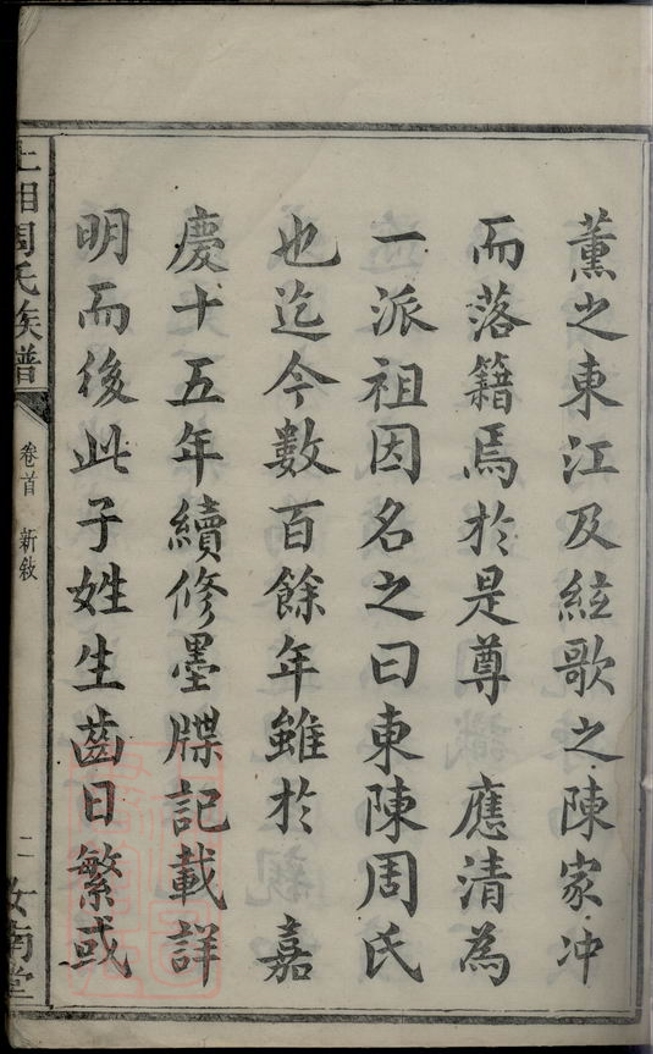 薰之東江及絃歌之陳家冲
而落籍焉於是尊 應清為
一派祖因名之曰東陳周氏
也迄今數百餘年雖於 嘉
慶十五年續修墨牒記載詳
明而後此子姓生齒日繁或
上湘周氏族譜
卷首 新敘
二
汝南堂